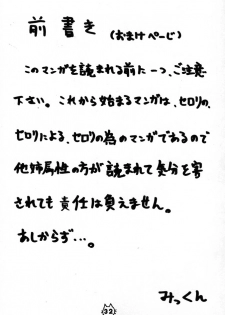 前書き (おまけぺーじ)
このマンガを読まれる前に一つ、ご注意
下さい。これから始まるマンガは、セロリの、
セロリによる、セロリの為のマンガであるので
他姉属性の方が読まれて気分を害
されても責任は負えません。
あしからず…。
みっくん
32